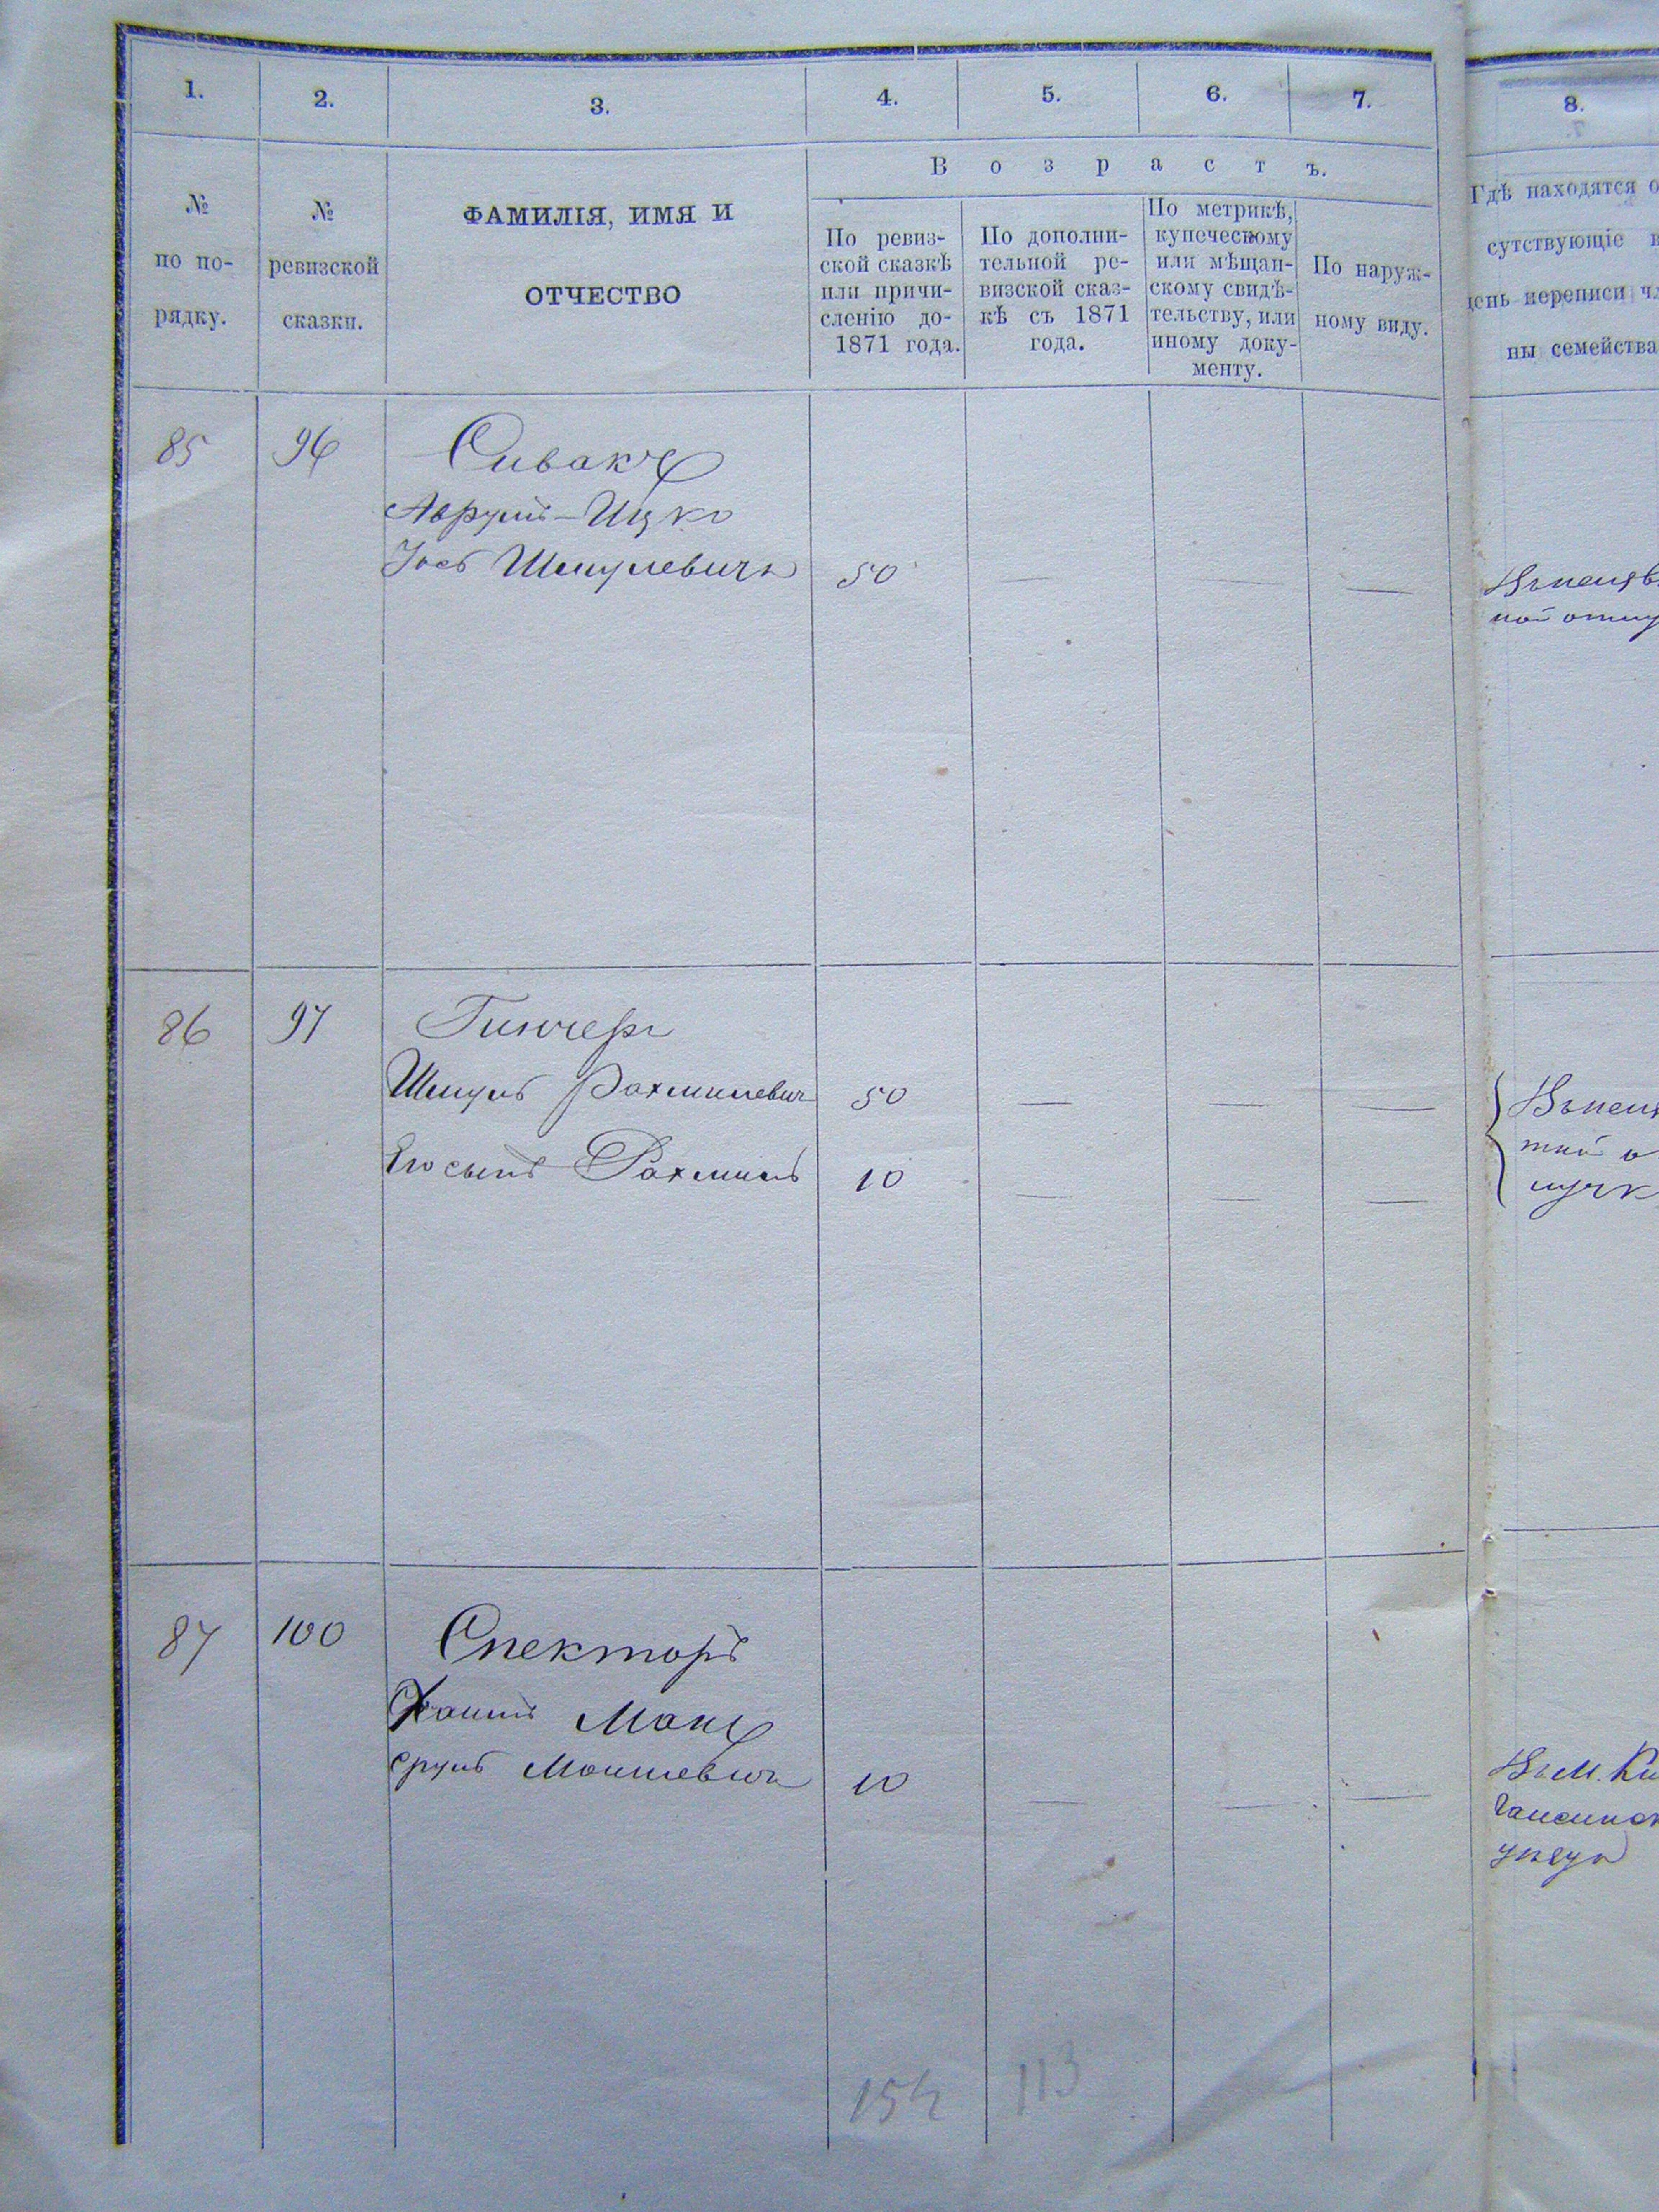 1.
2.
3.
4.
5.
6.
7.
8.
№
по по-
рядку.
№
ревизской
сказки.
ФАМИЛІЯ, ИМЯ И
ОТЧЕСТВО
Возрастъ.
По ревиз-
ской сказкѣ
или причи-
сленію до-
1871 года.
По дополни-
тельной ре-
визской сказ-
кѣ съ 1871
года.
По метрикѣ,
купеческому
или мѣщан-
скому свидѣ-
тельству, или
иному доку-
менту.
По наруж-
ному виду.
Гдѣ находятся о
сутствующіе в
день переписи чл
ны семейства
85 96 Сивакъ
Аврумъ-Ицко
Іось Шмулевичъ 50 — — —
ной отлу
86 97
Шмуль Рахмилевич 50 — — —
Его сынъ Рахмиль 10 — — —
{ тной о
лучк
87 100 Спекторъ
Хаимъ
Сруль Мошкевичъ 10 — — —
Въ М. Ки
Гайсинск
уѣзда
154 113